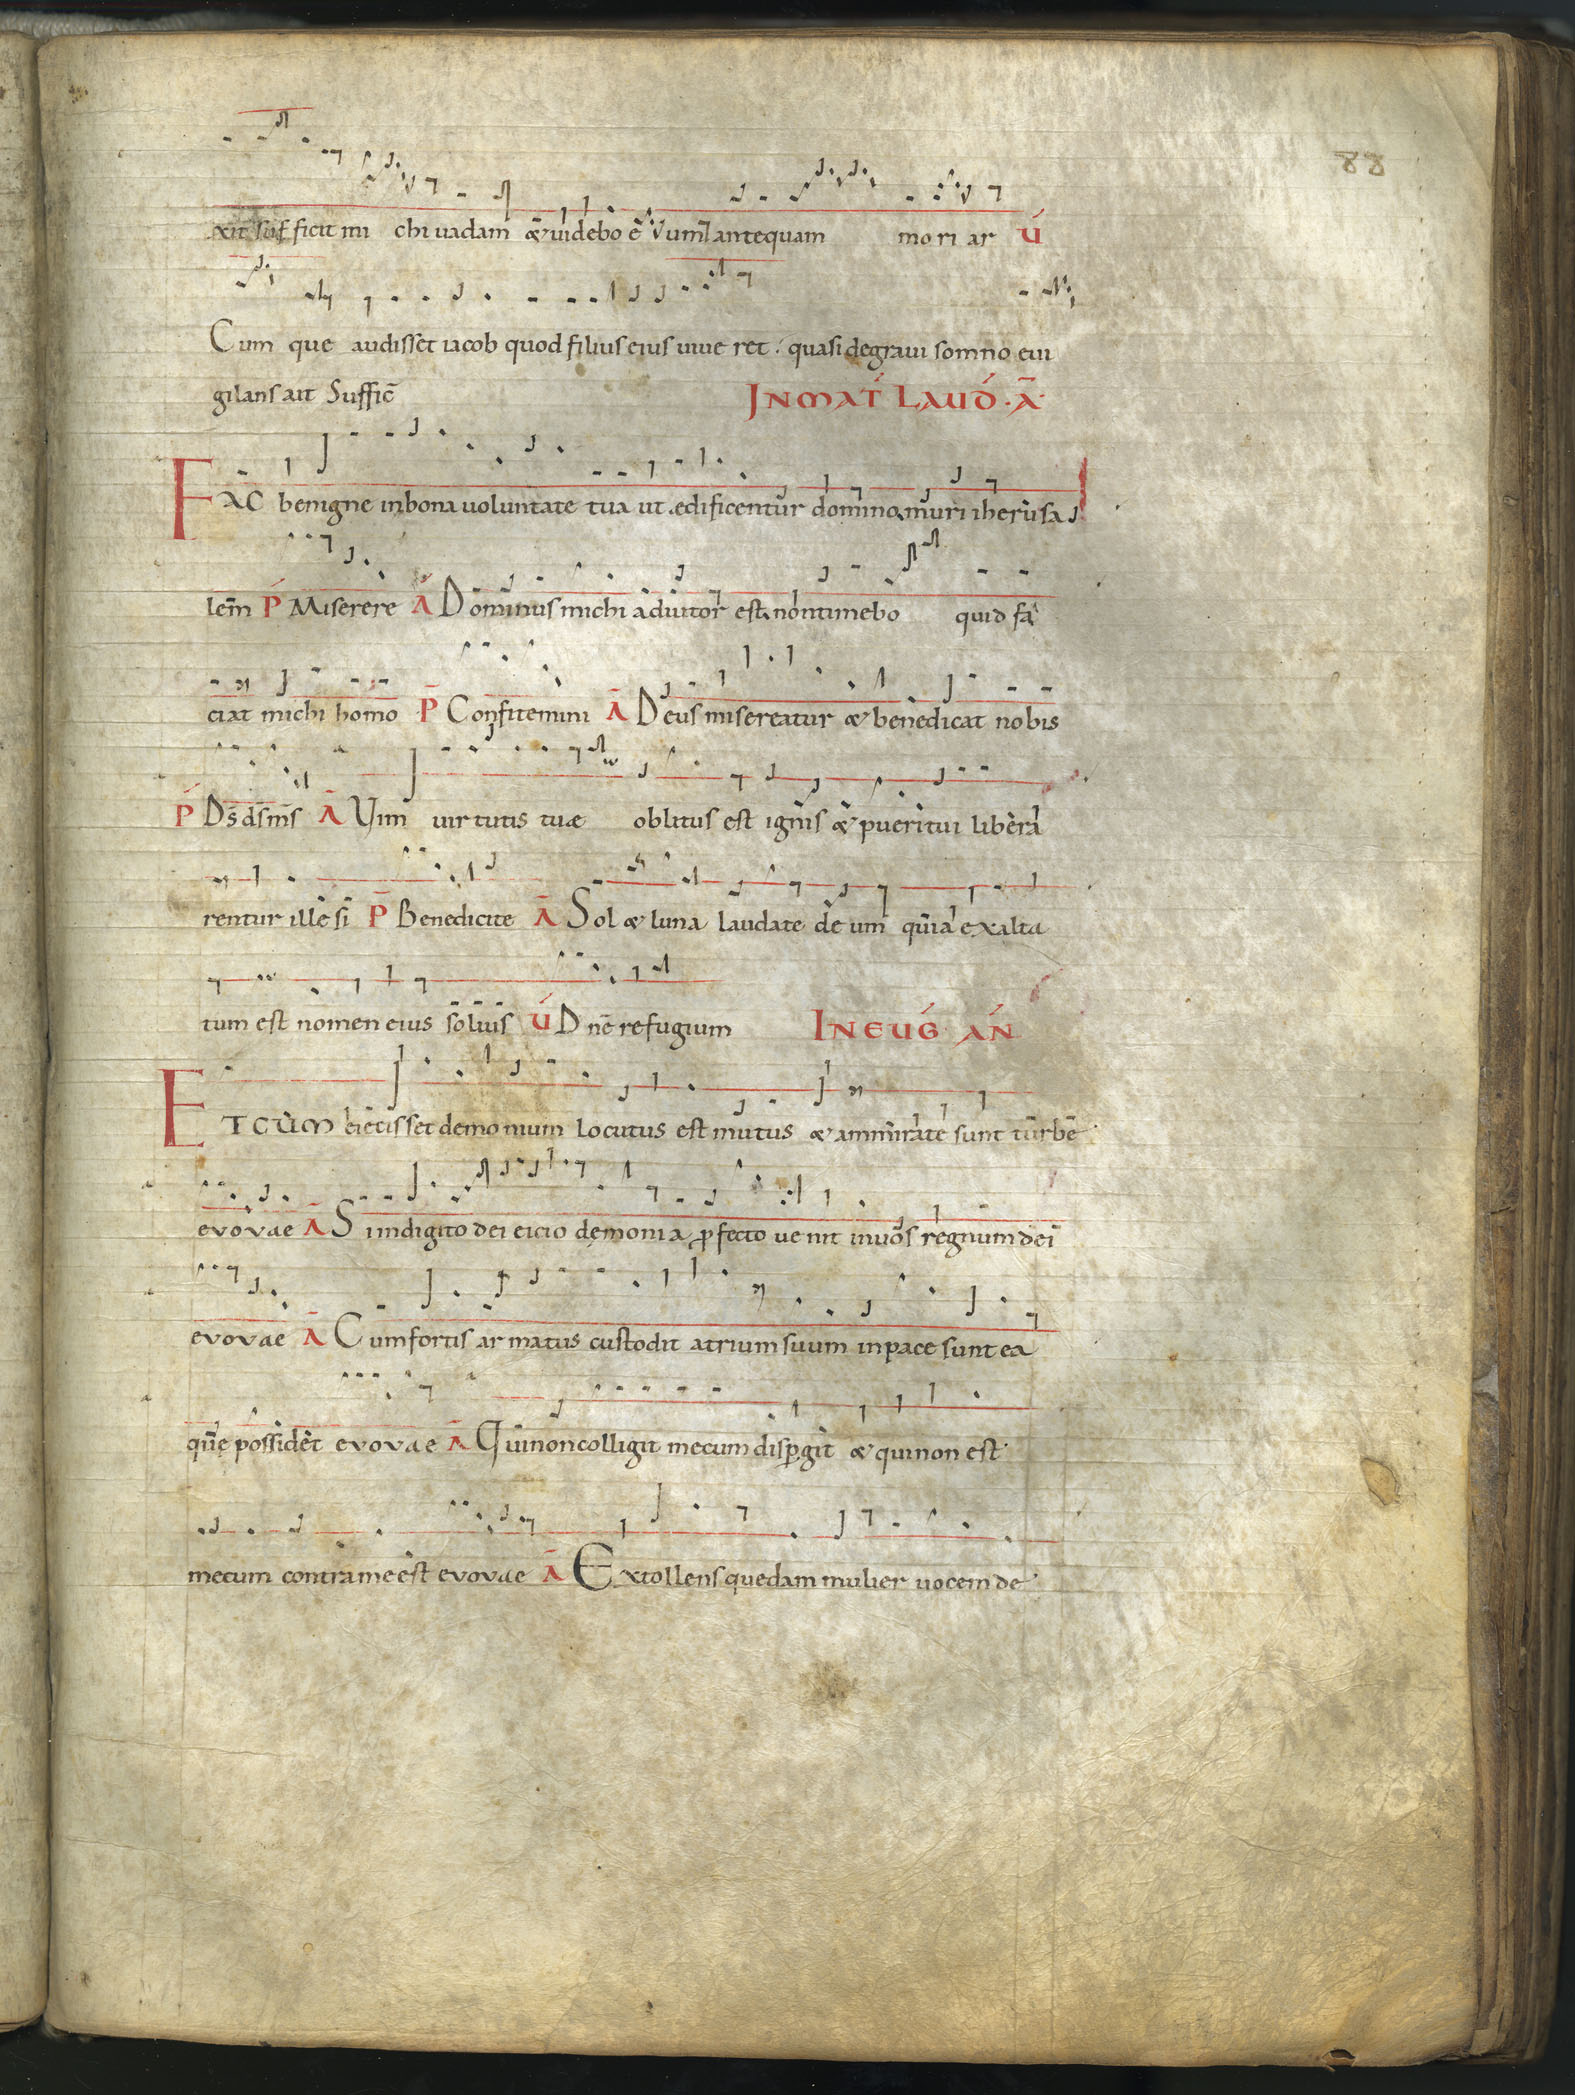 88
xit suf ficit mi chi uadam & uidebo eum antequam mori ar V́
Cum que audisset iacob quod filius eius uiue ret. quasi degraui somno eui
gilans ait Suffic̄
IN MAT́ LAUD́. Ā.
FAC benigne inbona uoluntate tua ut ædificentur domine muri iherusa
lem P̄ Miserere Ā Dominus michi adiutor est nontimebo quid fa
ciat michi homo P̄ Confitemini Ā Deus misereatur & benedicat nobis
P̄ D̄s d̄s m̄s Ā Vim uirtutis tuæ oblitus est ignis & pueri tui libera
rentur illesi P̄ Benedicite Ā Sol & luna laudate deum quia exalta
tum est nomen eius solius V́ D nē refugium IN EUḠ AŃ
ET CUM eiecisset demonium locutus est mutus & ammirate sunt turbe
evovae Ā Si indigito dei eicio demonia profecto uenit inuos regnum dei
evovae Ā Cum fortis armatus custodit atrium suum inpace sunt ea
quę possidet evovae Ā Qui non colligit mecum dispergit & qui non est
mecum contra me est evovae Ā Extollens quedam mulier uocem de